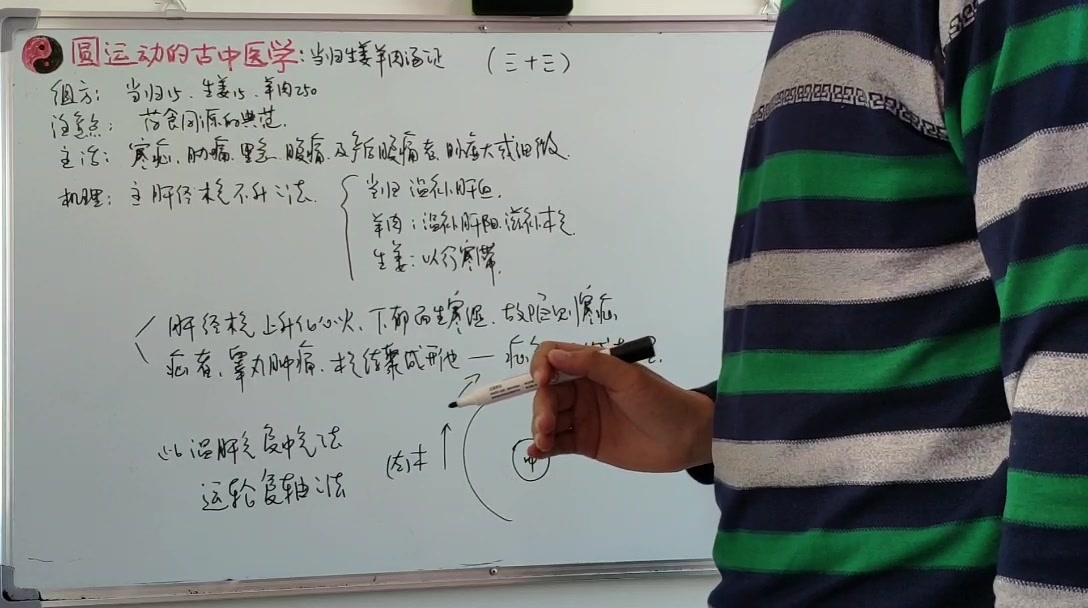 圆运动的古中医学:当归生姜羊肉汤证 (三十三)
组方: 当归15、生姜15、羊肉250
注意点: 药食同源的典范.
主治: 寒疝、胁痛、里急、腹痛、及产后腹痛者、脉虚大或细微.
机理: 主肝经木气不升之法.
当归温补肝血.
羊肉:温补肝阳、滋补木气.
生姜:以行寒滞.
肝经木气上升化心火、下郁而生寒湿、故
疝者、睾丸肿痛、木气结聚成形也 —
以温肝气复中气法
运轮复轴之法
木
中